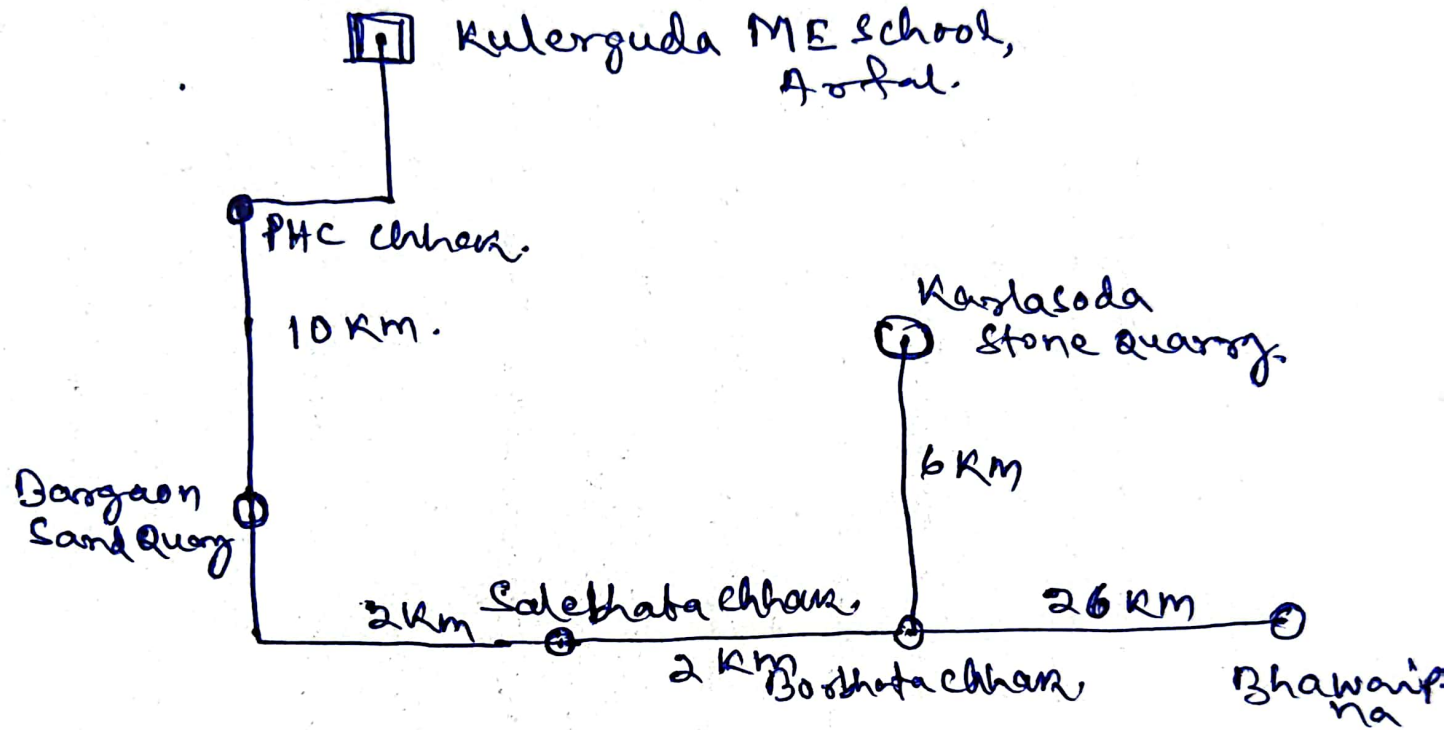 Kulerguda ME School,
Arfal.
PHC Chhak.
10 KM.
Karlasoda
Stone Quarry.
6 KM
Dargaon
Sand Quarry
2 Km
Salebhata Chhak.
26 KM
2 KM
Borbhata Chhak,
Bhawaip
na